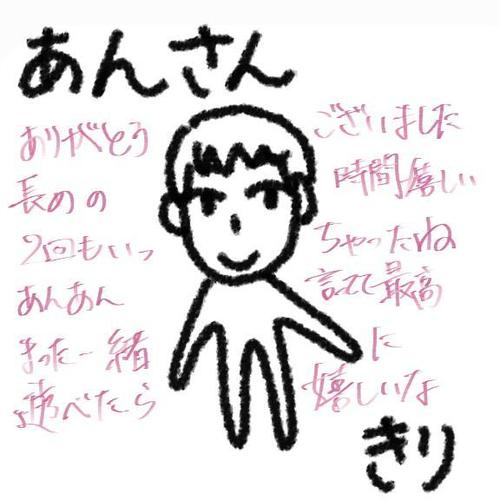 あんさん
ありがとう ございました
長めの 時間嬉しい
2回もいっ ちゃったね
あんあん 言てて最高
まった一緒 に
遊べたら 嬉しいな
きり